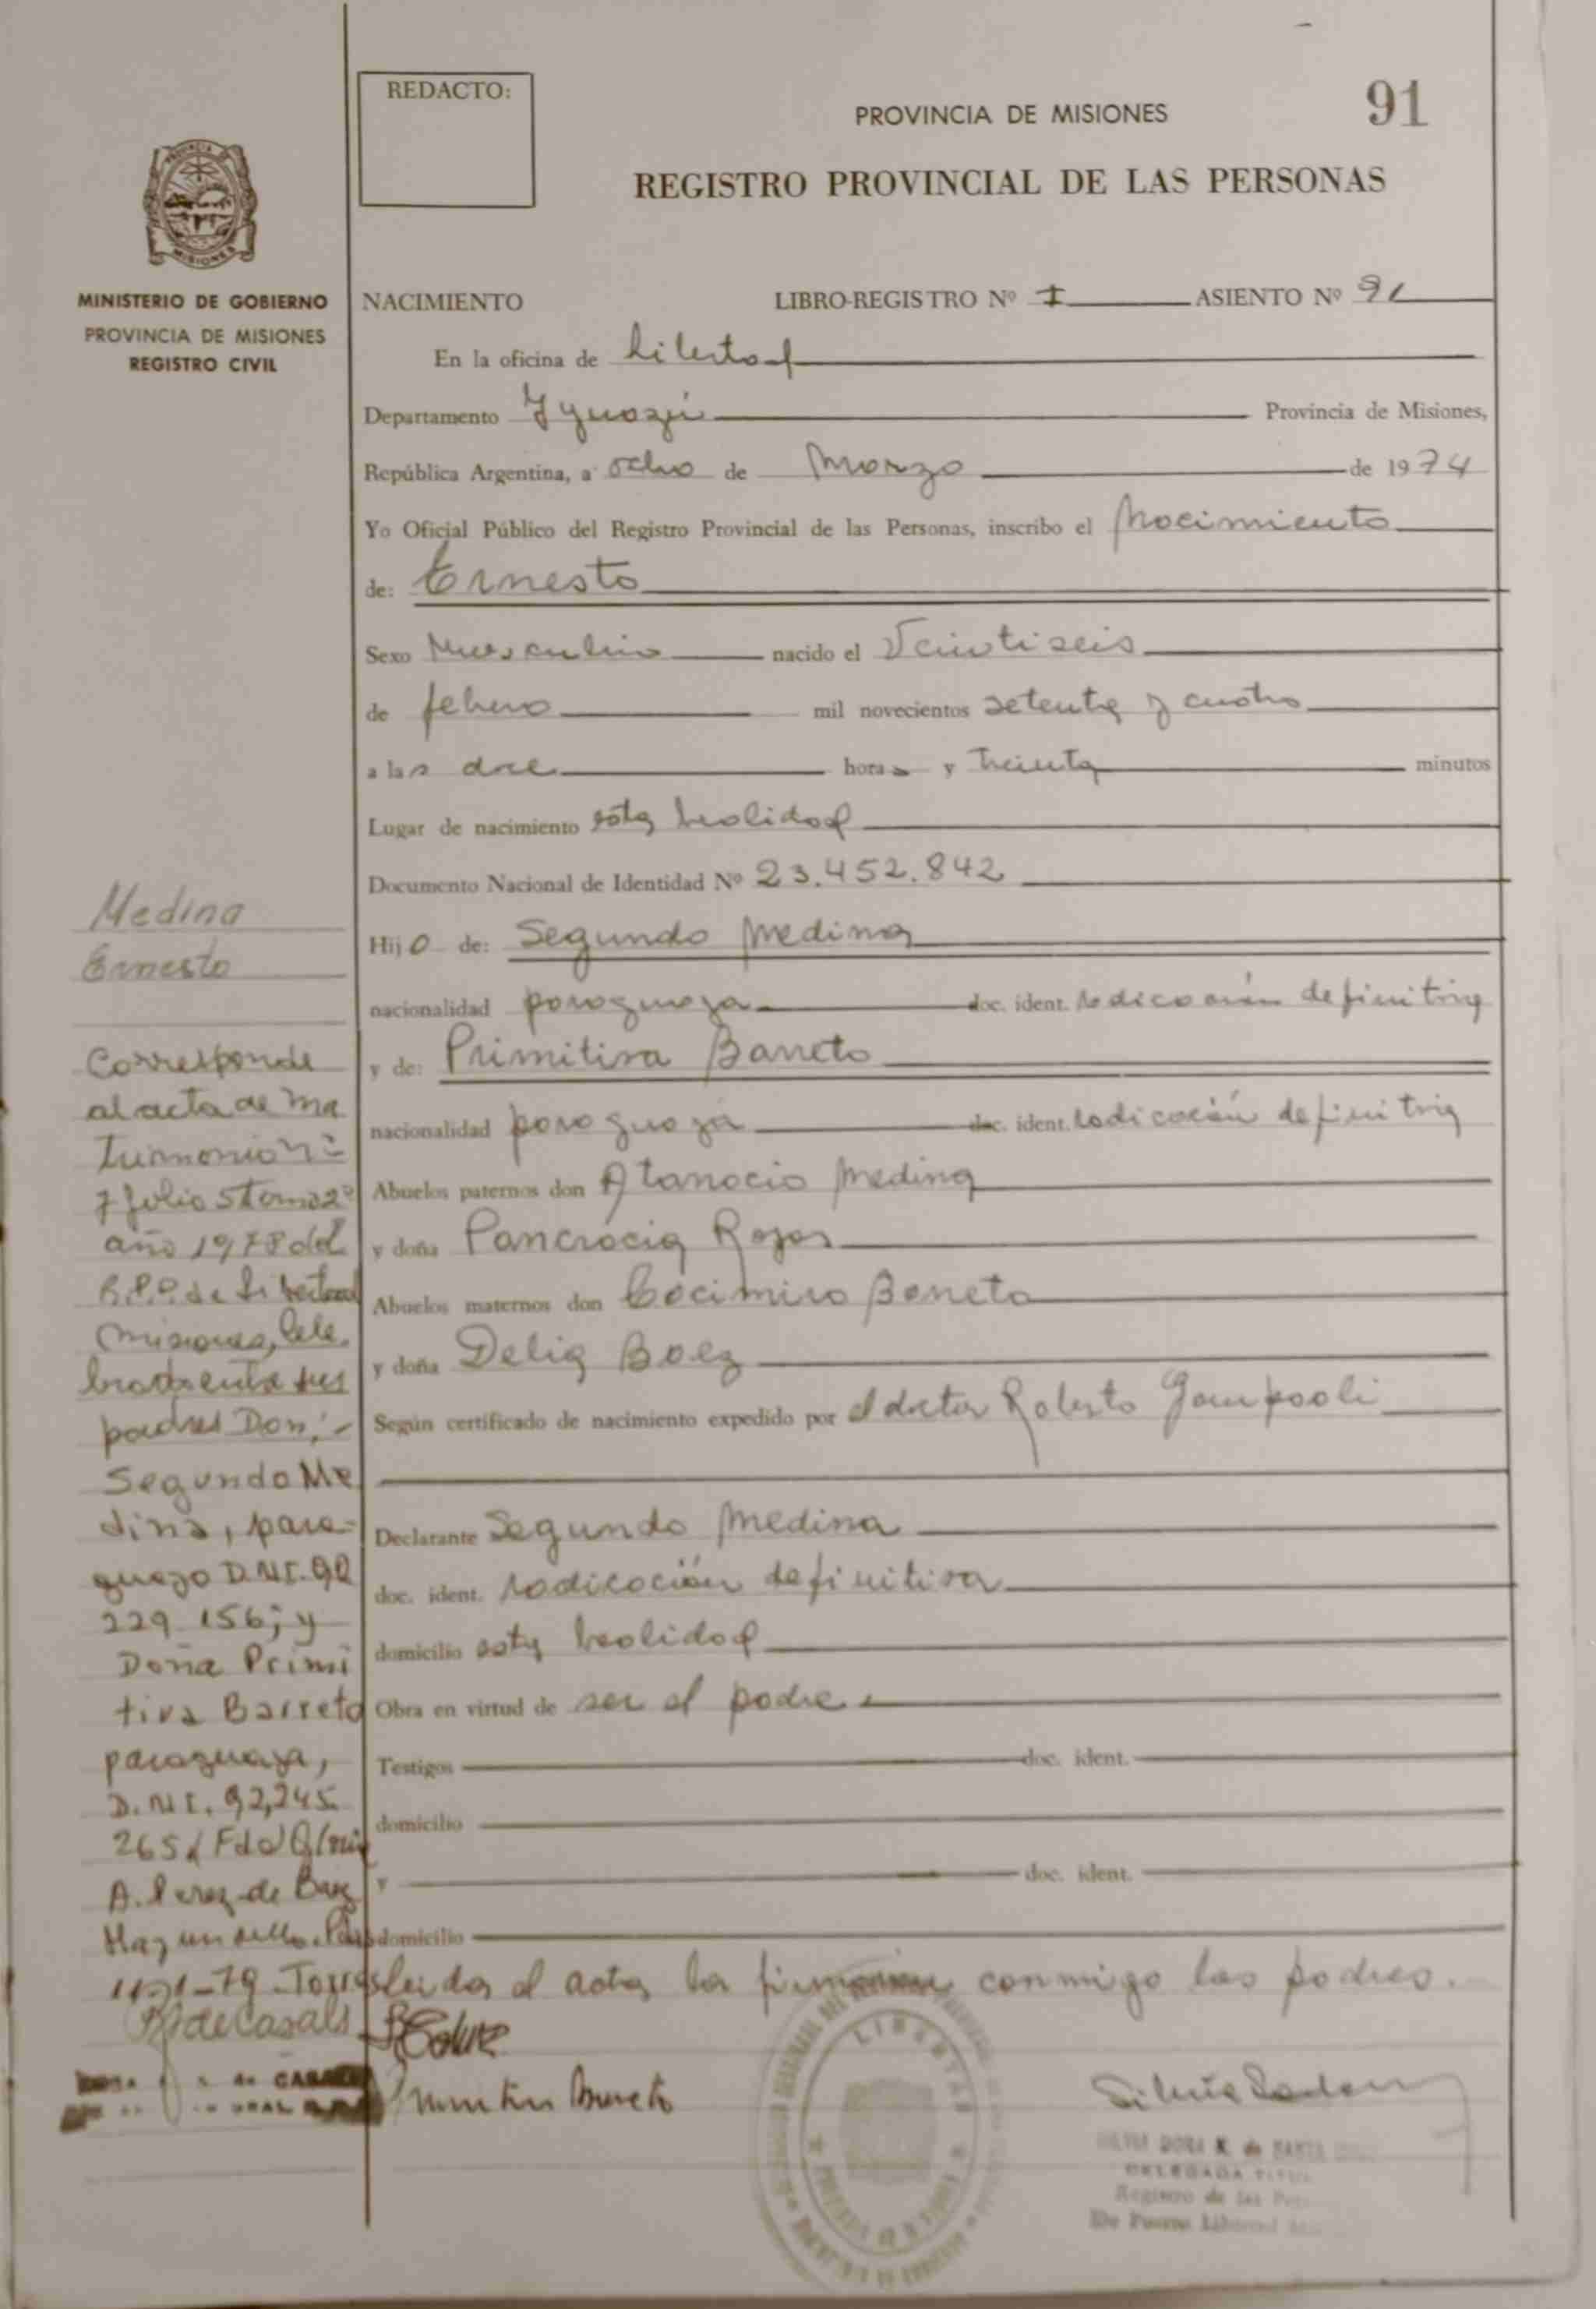 REDACTO:
PROVINCIA DE MISIONES
91
REGISTRO PROVINCIAL DE LAS PERSONAS
MINISTERIO DE GOBIERNO
PROVINCIA DE MISIONES
REGISTRO CIVIL
NACIMIENTO LIBRO-REGISTRO Nº I ASIENTO Nº 91
En la oficina de Libertad
Departamento Yguazú Provincia de Misiones,
República Argentina, a ocho de Marzo de 1974
Yo Oficial Público del Registro Provincial de las Personas, inscribo el Nacimiento
de: Ernesto
Sexo Masculino nacido el Veintiseis
de febrero mil novecientos setenta y cuatro
a las doce horas y treinta minutos
Lugar de nacimiento esta localidad
Documento Nacional de Identidad Nº 23.452.842
Hijo de: Segundo Medina
nacionalidad paraguaya doc. ident. radicación definitiva
y de: Primitiva Barreto
nacionalidad paraguaya doc. ident. radicación definitiva
Abuelos paternos don Atanacio Medina
y doña Pancracia Rojas
Abuelos maternos don Cacimiro Barreto
y doña Delia Baez
Según certificado de nacimiento expedido por el doctor Roberto
Declarante Segundo Medina
doc. ident. radicación definitiva
domicilio esta localidad
Obra en virtud de ser el padre
Testigos doc. ident.
domicilio
y doc. ident.
domicilio
leida el acta la firman conmigo los padres.
Medina
Ernesto
Corresponde
al acta de ma
trimonio nº
7 folio 5 tomo 2º
año 1978 del
R.P.P. de Libertad
Misiones, cele
brado entre sus
padres Don:
Segundo Me
dina, para-
guayo D.N.I. 92
229 156; y
Doña Primi
tiva Barreto
paraguaya,
D.N.I. 92,245
265
A. Perez de Baez
Hay un sello.
11-1-79
LIBERTAD
DELEGADA
Registro de las